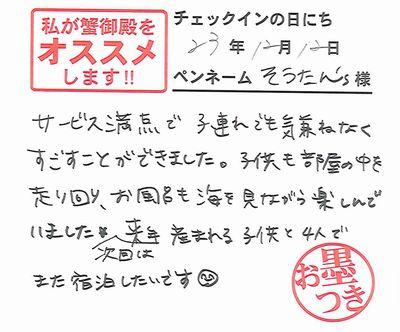 私が蟹御殿を
オススメ
します!!
チェックインの日にち
23年12月12日
ペンネーム そうたん's 様
サービス満点で 子連れでも気兼ねなく
すごすことができました。子供も部屋の中を
走り回り、お風呂も海を見ながら楽しんで
いました 来年 産まれる子供と4人で
次回は
また宿泊したいです
お墨つき